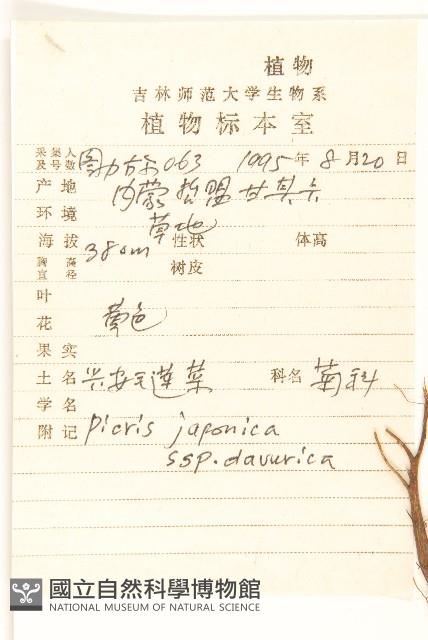 植物
吉林师范大学生物系
植物标本室
采集人及号数 图力古尔063 1995年8月20日
产地 内蒙哲盟甘其卡
环境 草地
海拔 380m 性状 体高
胸高直径 树皮
叶
花 黄色
果实
土名 兴安毛莲菜 科名 菊科
学名
附记 Picris japonica
ssp. davurica
國立自然科學博物館
NATIONAL MUSEUM OF NATURAL SCIENCE